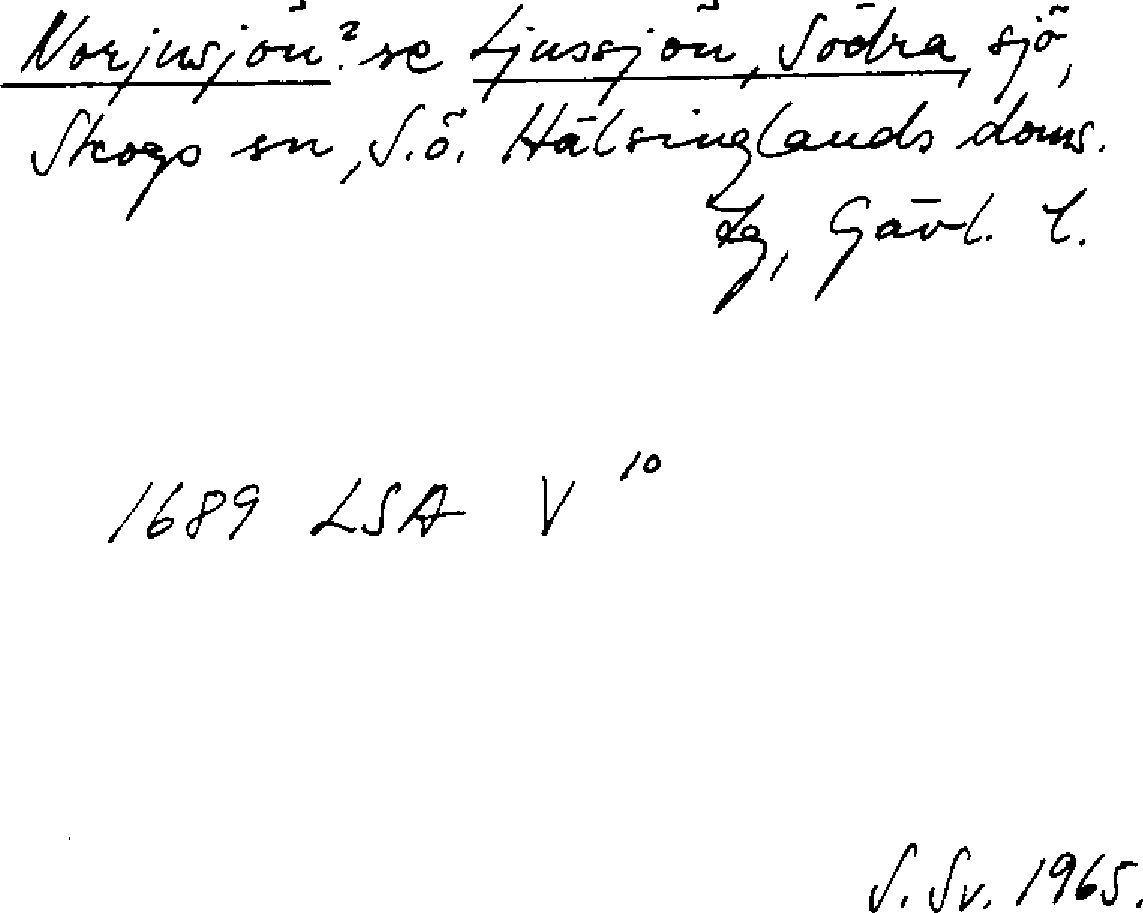 Norjusjön? se Ljussjön, Södra, sjö,
Skogs sn, S.ö. Hälsinglands doms.
lg, Gävl. l.
1689 LSA V 10
S. Sv. 1965.